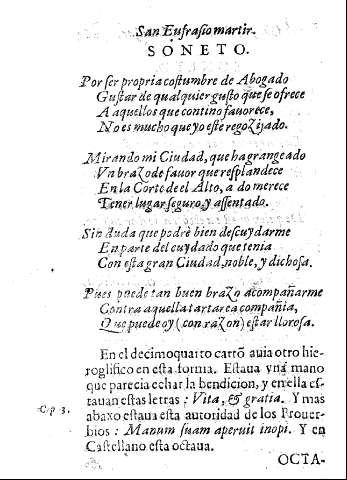 San Eufrasio martir.
SONETO.
Por ser propria costumbre de Abogado
Gustar de qualquier gusto que se ofrece
A aquellos que contino fauorece,
No es mucho que yo estè regozijado.
Mirando mi Ciudad, que ha grangeado
Vn brazo de fauor que resplandece
En la Corte de el Alto, a do merece
Tener lugar seguro, y assentado.
Sin duda que podrè bien descuydarme
En parte del cuydado que tenia
Con esta gran Ciudad, noble, y dichosa.
Pues puede tan buen brazo acompañarme
Contra aquella tartarea compañia,
Que puede oy (con razon) estar llorosa.
En el decimoquarto cartõ auia otro hie-
roglifico en esta forma. Estaua vna mano
que parecia echar la bendicion, y en ella es-
tauan estas letras: Vita, & gratia. Y mas
abaxo estaua esta autoridad de los Prouer-
Cap. 3.
bios: Manum suam aperuit inopi. Y en
Castellano esta octaua.
OCTA-